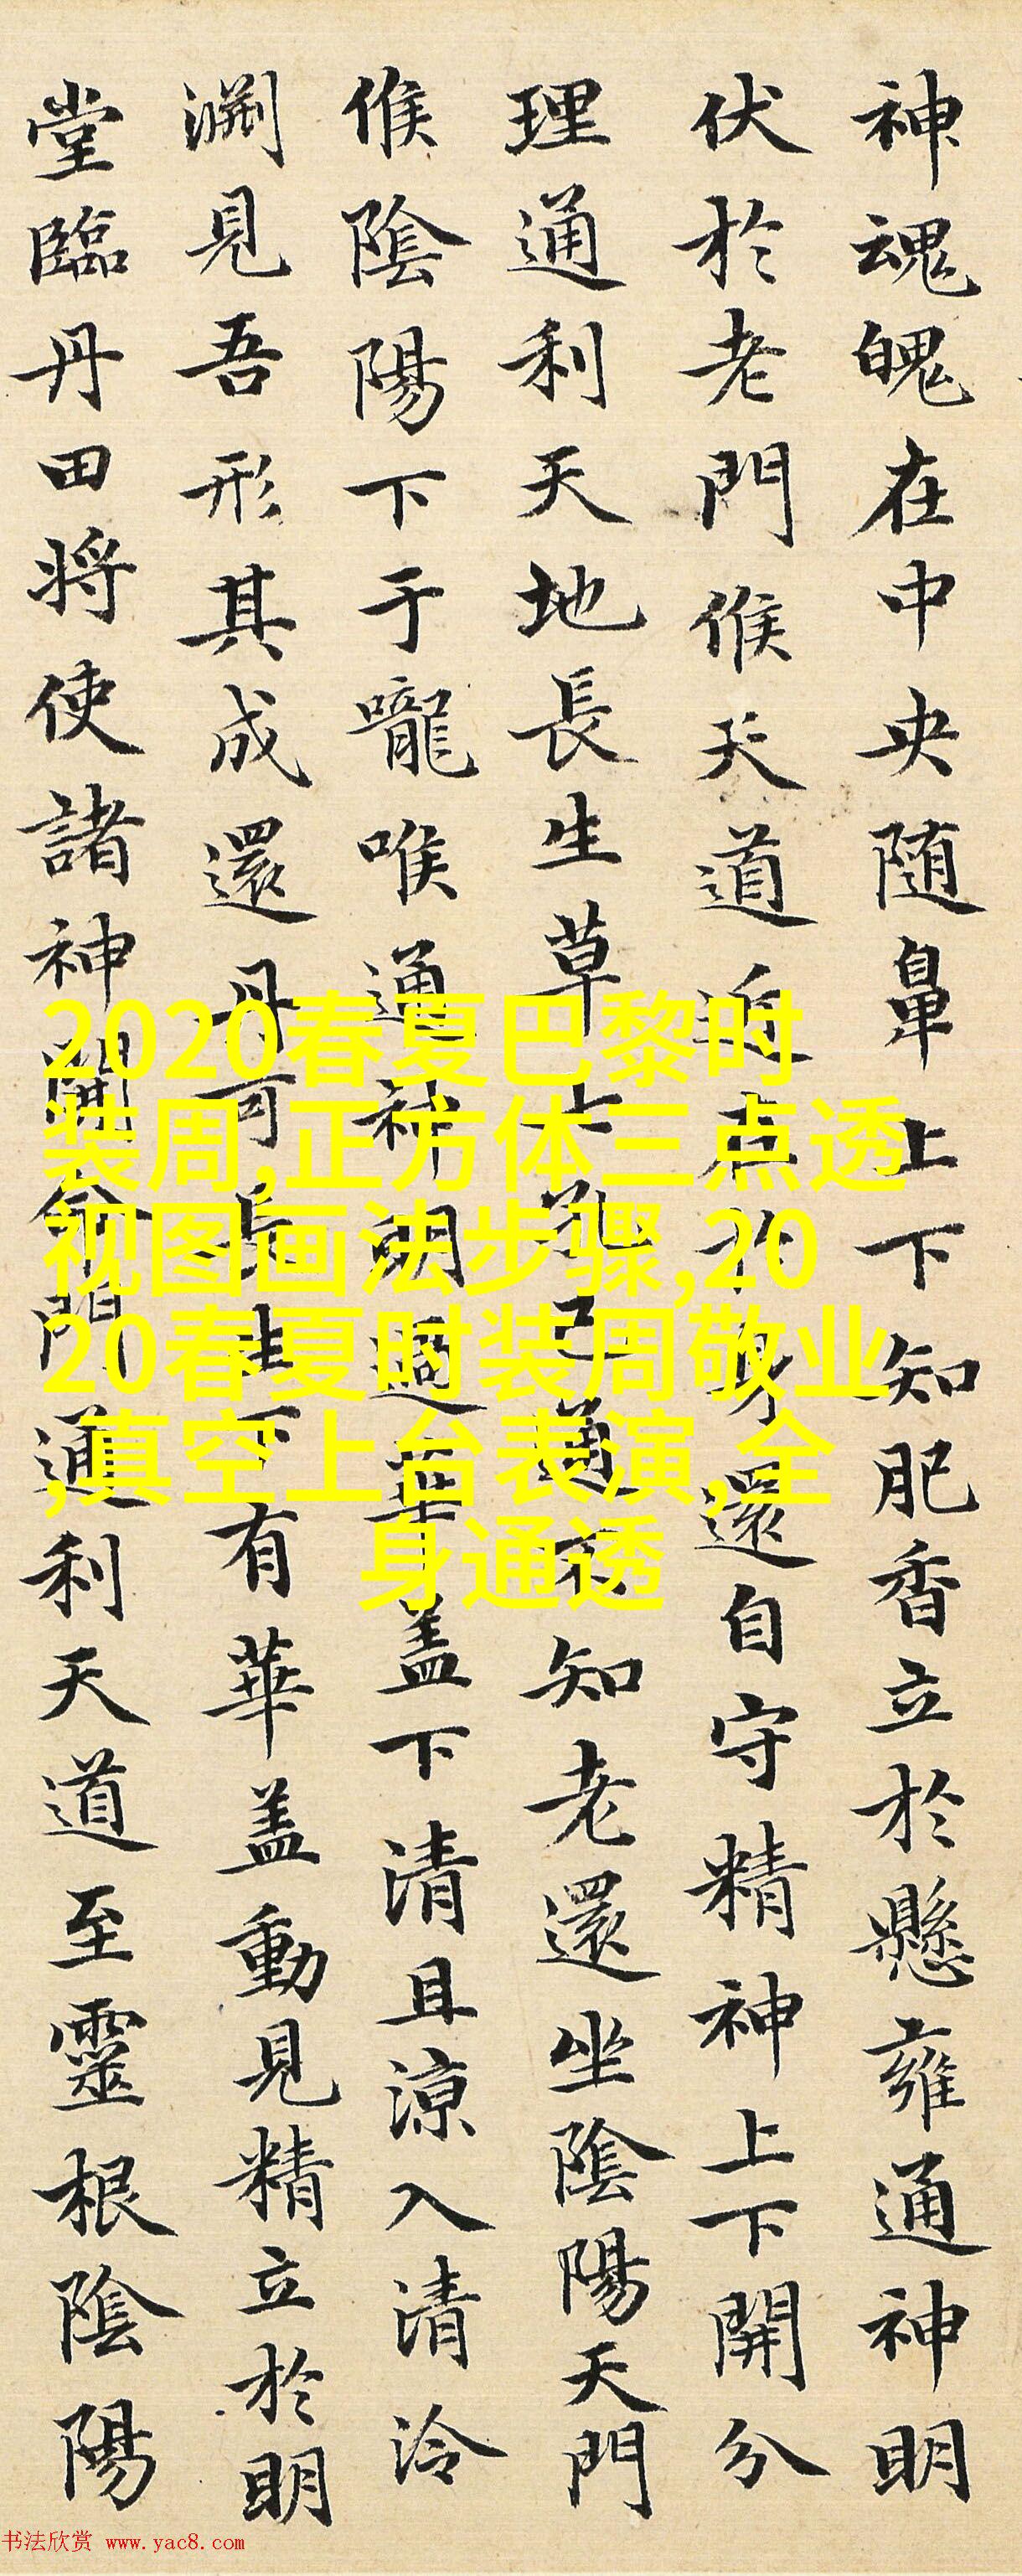 神魂魄在中央随鼻上下知肥香立於懸雍通神明
伏於老門候天道近在於身還自守精神上下開分
理通利天地長生草七孔已通不知老還坐陰陽天門
候陰陽下于嚨喉通神明過華盖下清且涼入清泠
渊見吾形其成還丹可長生下有華盖動見精立於明
堂臨丹田将使諸神開命門通利天道至靈根陰陽
2020春夏巴黎时
装周,正方体三点透
视图画法步骤,20
20春夏时装周敬业
,真空上台表演,全
身通透
书法欣赏 www.yac8.com